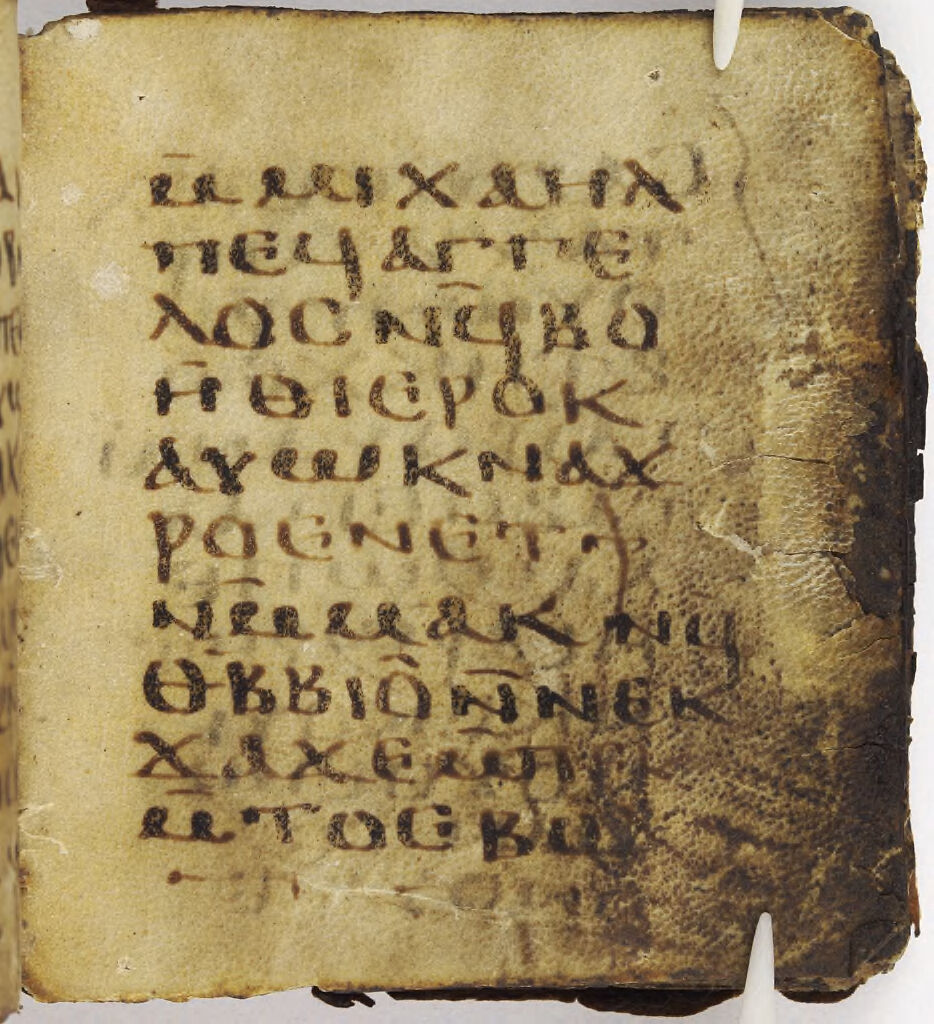 ⲙ̄ⲙⲓⲭⲁⲏⲗ
ⲡⲉϥⲁⲅⲅⲉ
ⲗⲟⲥⲛϥ̄ⲃⲟ
ⲏ̄ⲑⲓⲉⲣⲟⲕ
ⲁⲩⲱⲕⲛⲁϫ
ⲣⲟⲉⲛⲉⲧϯ
ⲛⲙ̄ⲙⲁⲕⲛϥ
ⲑⲃ̄ⲃⲓⲟⲛ̄ⲛⲉⲕ
ϫⲁϫⲉⲙ̄ⲡⲉ
ⲙ̄ⲧⲟⲉⲃⲟ